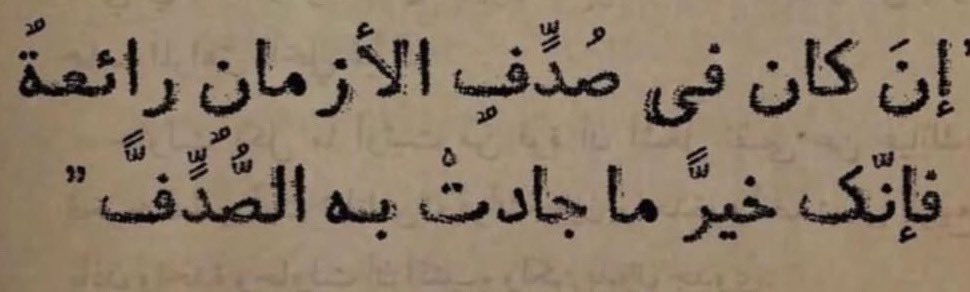 "إنَ كان في صُدِّفٍ الأزمان رائعةً
فإنّك خيرَّ ما جادتْ به الصُّدِّفَّ"